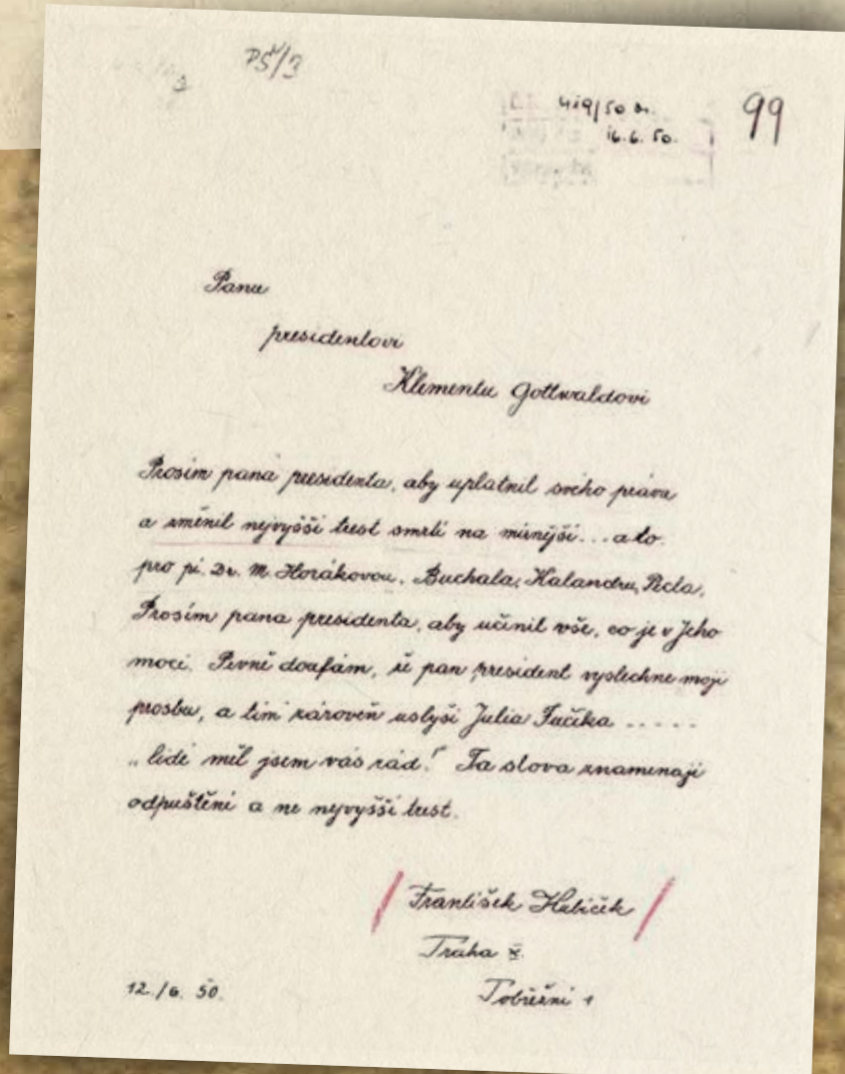 PŠ/3
99
419/50 
16.6.50.
Panu
presidentovi
Klementu Gottwaldovi
Prosím pana presidenta, aby uplatnil svého práva
a změnil nejvyšší trest smrti na mírnější... a to
pro pí. Dr. M. Horákovou, Buchala, Kalandru, Pecla.
Prosím pana presidenta, aby učinil vše, co je v Jeho
moci. Pevně doufám, že pan president vyslechne moji
prosbu, a tím zároveň uslyší Julia Fučíka .....
„lidé měl jsem vás rád!" Ta slova znamenají
odpuštění a ne nejvyšší trest.
František Hubiček
Praha X.
Pobřežní 1
12./6. 50.